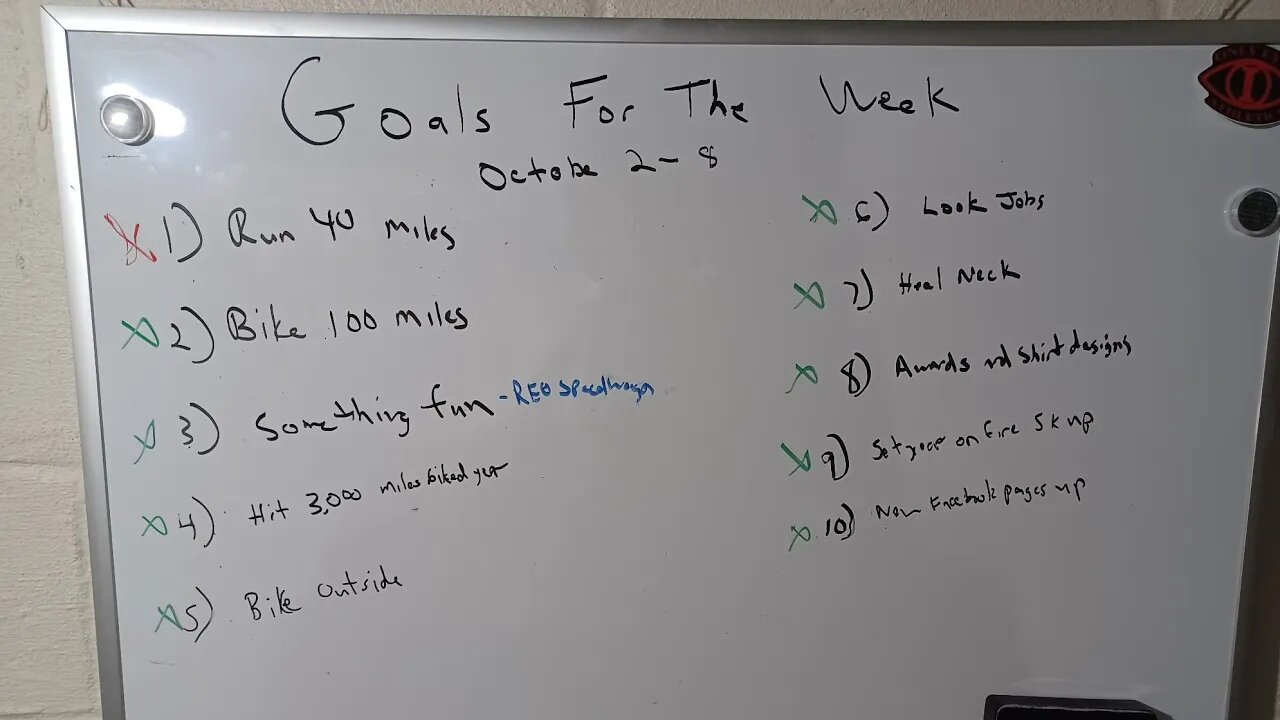 Goals For The Week
October 2-8
1) Run 40 miles
2) Bike 100 miles
3) Something fun - REO Speedwagon
4) Hit 3,000 miles biked year
5) Bike Outside
6) Look Jobs
7) Heal Neck
8) Awards and Shirt designs
9) Set year on Fire 5k up
10) New Facebook pages up